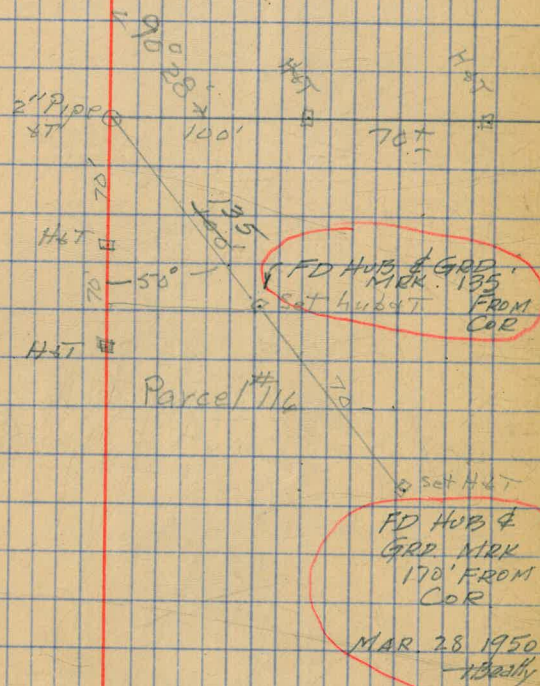 90° 28'
H&T
H&T
2" Pipe
&T
100'
70±
70'
135
100'
H&T
70'
50°
FD HUB & GRD.
MRK. 135
FROM
COR
Set hub&T
H&T
Parcel #116
70
Set H&T
FD HUB &
GRD MRK
170' FROM
COR.
MAR. 28 1950